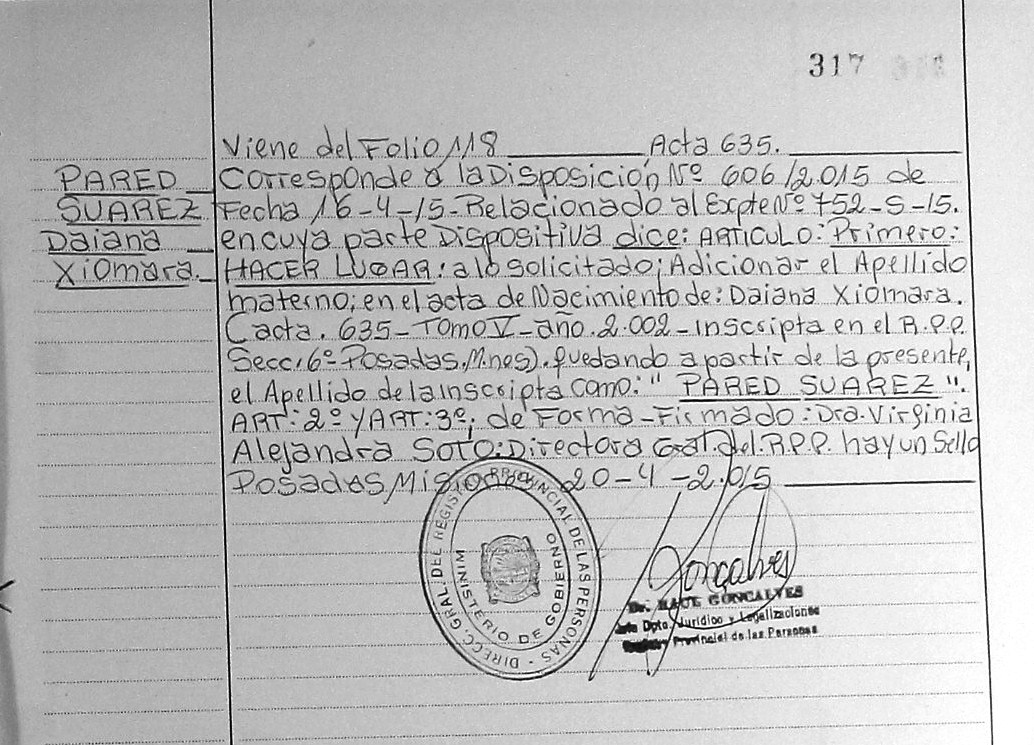 317
Viene del Folio 118 Acta 635.
PARED
SUAREZ
Daiana
Xiomara.
Corresponde a la Disposición Nº 606/2.015 de
Fecha 16-4-15-Relacionado al Expte Nº 752-S-15.
en cuya parte Dispositiva dice: ARTICULO: Primero:
HACER LUGAR: a lo solicitado; Adicionar el Apellido
materno; en el acta de Nacimiento de: Daiana Xiomara.
Cacta. 635-TOMO V-año. 2.002-inscripta en el R.P.P.
Secc. 6º Posadas, Mnes). quedando a partir de la presente,
el Apellido de la inscripta como: "PARED SUAREZ".
ART: 2º Y ART: 3º; de Forma-Firmado: Dra. Virginia
Alejandra SOTO: Directora Gral. del. R.P.P. hay un Sello
Posadas, Misiones, 20-4-2.015
DIRECC. GRAL. DEL REGISTRO PROVINCIAL DE LAS PERSONAS
MINISTERIO DE GOBIERNO
Goncalves
GONCALVES
Dpto. Jurídico y Legalizaciones
Provincial de las Personas